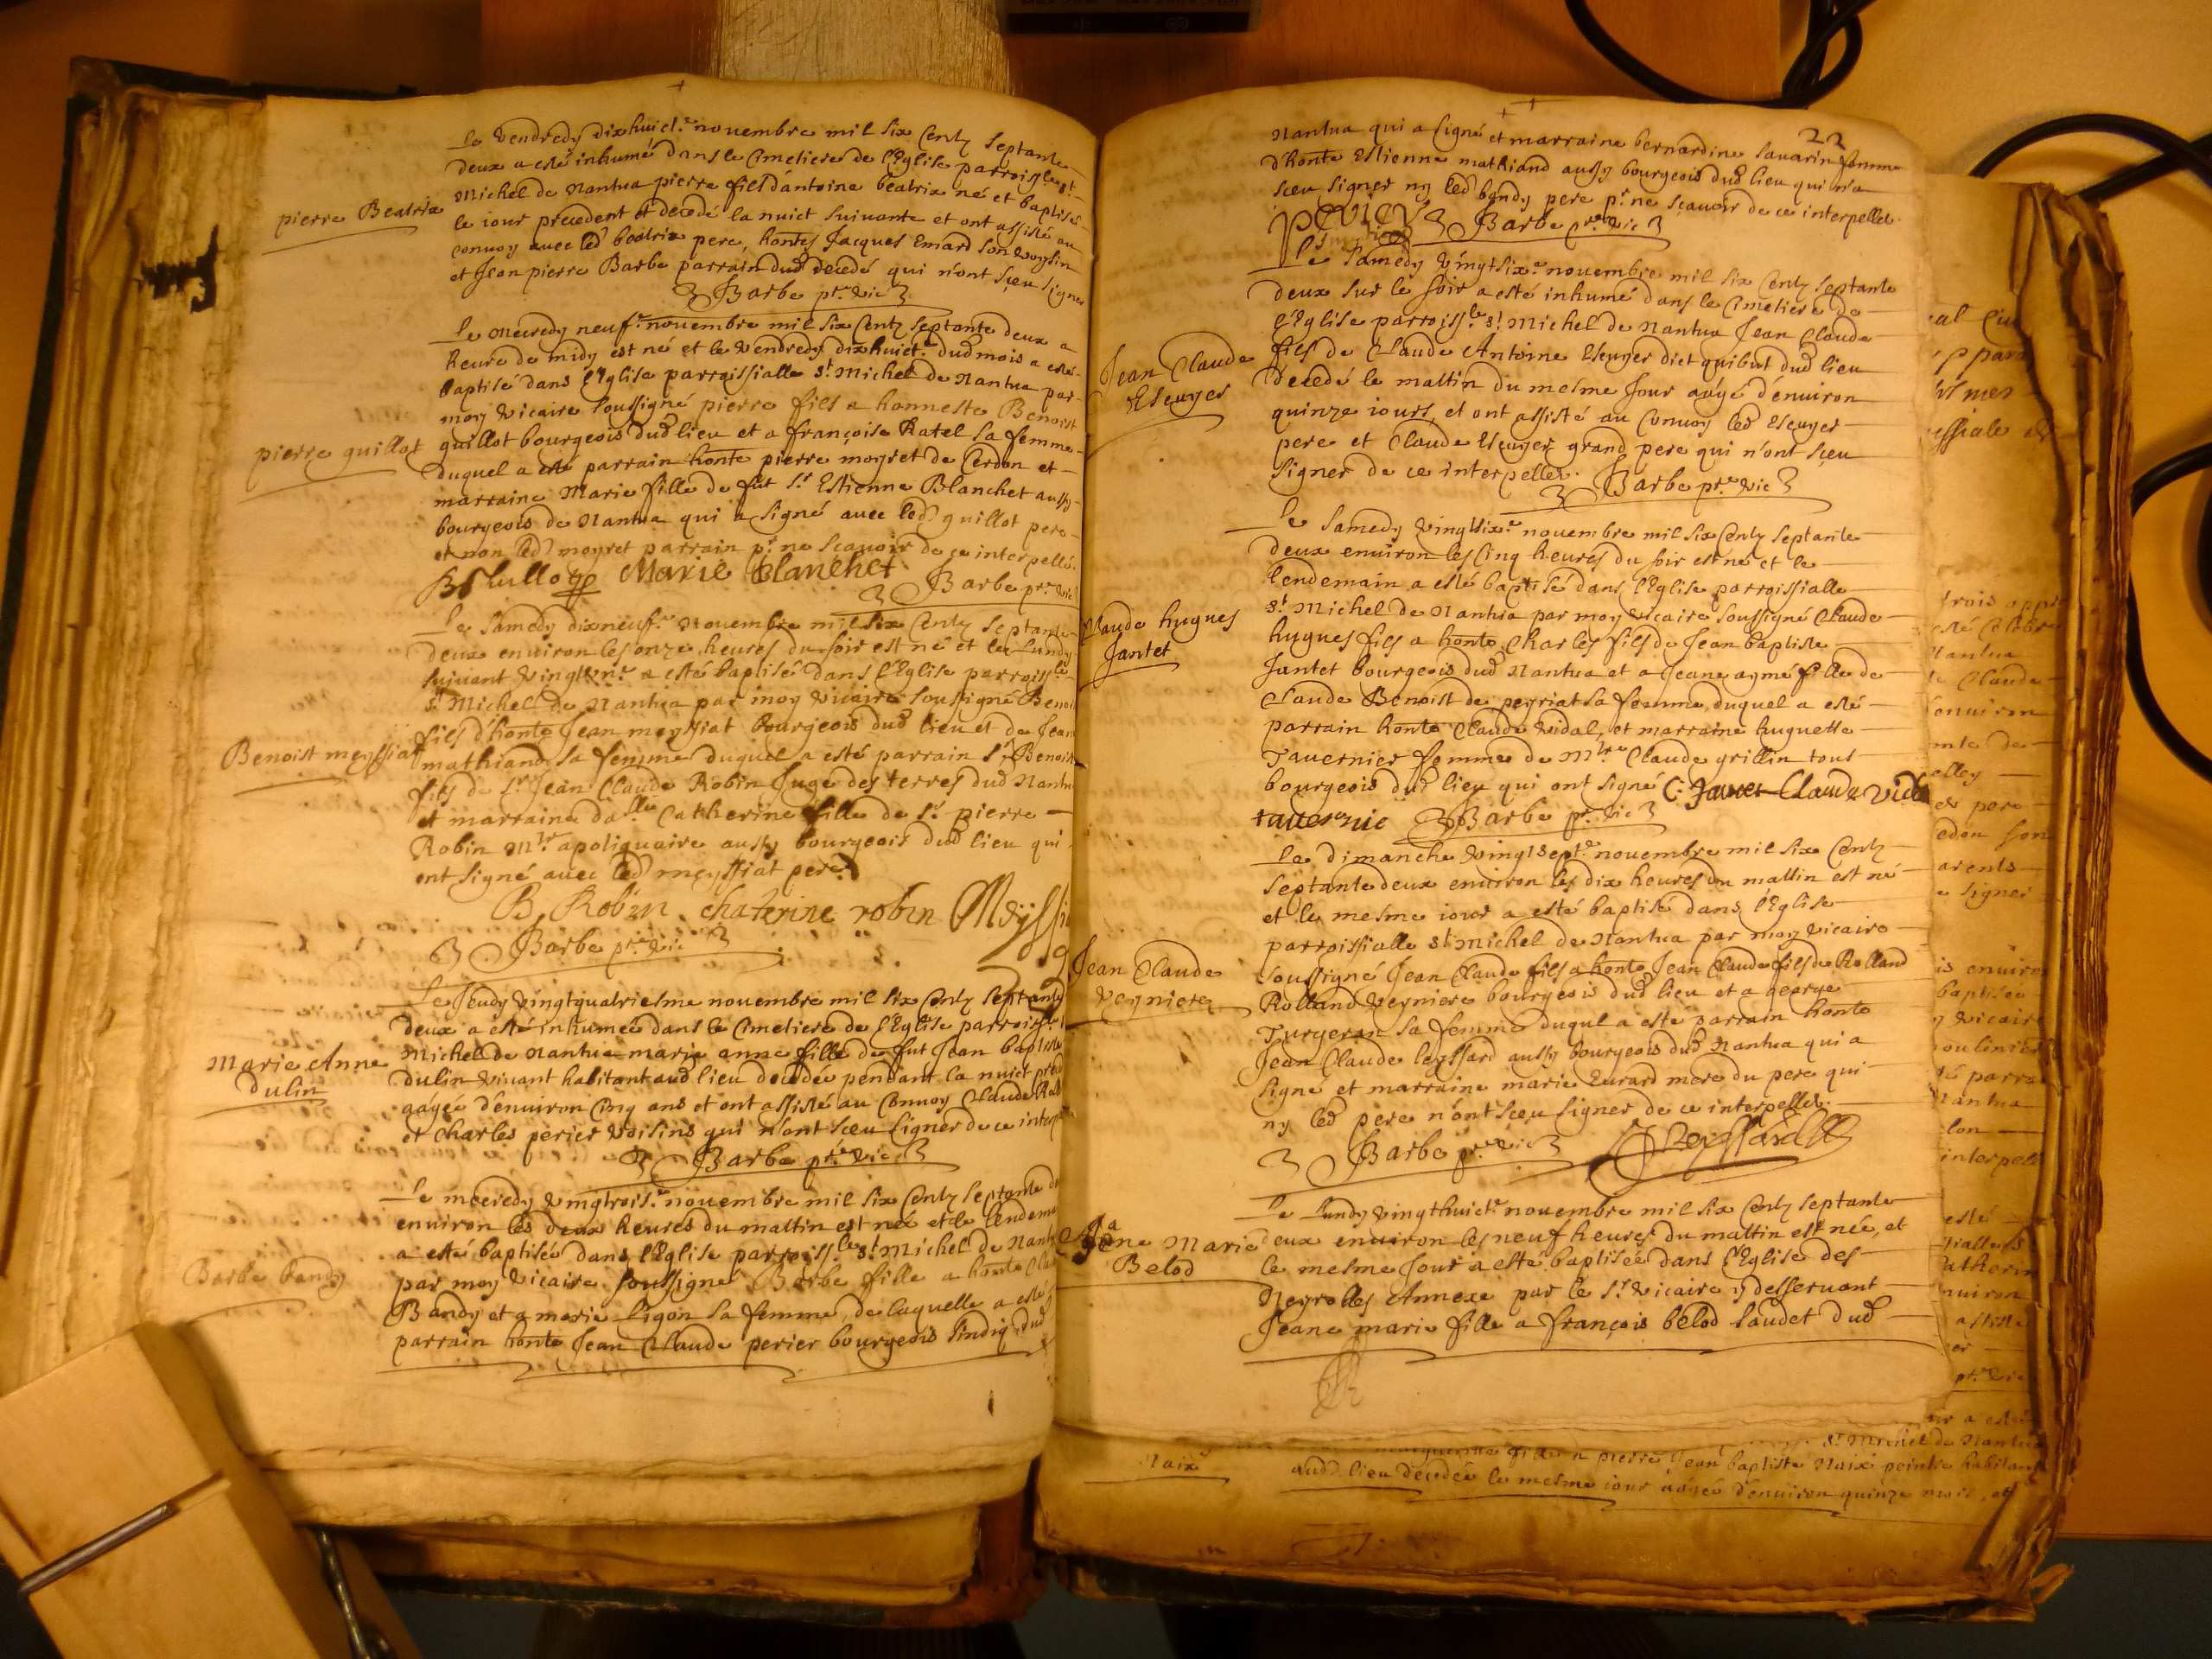 Le Vendredy dixhuict.e novembre mil six Centz septante
deux a esté inhumé dans le Cimetiere de l'Eglise parroiss.le s.t
Michel de Nantua pierre fils d'antoine beatrix né et baptisé
pierre Beatrix
le iour precedent et decedé la nuict suivante et ont assisté au
convoy avec led beatrix pere, hontes Jacques Emard son voysin
et Jean pierre Barbe parrain dud decedé qui n'ont sçeu signer
Barbe pr.e vic
Le Mecredy neuf.e novembre mil six Centz septante deux a
heure de midy est né et le Vendredy dixhuict.e dud mois a esté
baptisé dans l'Eglise parroissialle s.t Michel de Nantua par
moy vicaire soussigné pierre fils a honneste Benoist
pierre guillot
guillot bourgeois dud lieu et a françoise Ratel sa femme
duquel a esté parrain honte pierre moyret de Cerdon et
marraine Marie fille de fut s.r Estienne Blanchet aussy
bourgeois de Nantua qui a signé avec led guillot pere
et non led moyret parrain p.r ne scavoir de ce interpellé.
Marie Blanchet
Barbe pr.e vic
Le Samedy dixneuf.e Novembre mil six Centz septante
deux environ les onze heures du soir est né et le Lundy
suivant vingtun.e a esté baptisé dans l'Eglise parroiss.le
s.t Michel de Nantua par moy vicaire soussigné Benoi
fils d'honte Jean meyssiat bourgeois dud lieu et de Jean
Benoist meyssiat
mathiand sa femme duquel a esté parrain s.r Benoist
fils de s.r Jean Claude Robin Juge des terres dud Nantu
et marraine da.lle Catherine fille de s.r pierre
Robin M.tre apotiquaire aussy bourgeois dud lieu qui
ont signé avec led meyssiat pere
B. Robin chaterine robin Meyssia
Barbe pr.e vic
Le Jeudy vingtquatriesme novembre mil six Centz septante
deux a esté inhumée dans le Cimetiere de l'Eglise parroiss.le
Marie Anne
dulin
Michel de Nantua marie anne fille de fut Jean baptiste
dulin vivant habitant aud lieu decedée pendant la nuict
aâgée d'environ Cinq ans et ont assisté au Convoy Claude
et Charles perier voisins qui n'ont sceu signer de ce
Barbe pr.e vic
Le mecredy vingtrois.e novembre mil six Centz septante
environ les deux heures du mattin est née et le lendem
a esté baptisée dans l'Eglise parroiss.le s.t Michel de Nant
Barbe bandy
par moy vicaire soussigné Barbe fille a honte
Bandy et a marie Ligon sa femme, de laquelle a esté
parrain honte Jean Claude perier bourgeois sindiq dud
22
Nantua qui a signé et marraine bernardine savarin femme
d'honte Estienne mathiand aussy bourgeois dud lieu qui n'a
sceu signer ny led bandy pere p.r ne sçavoir de ce interpellé.
Perier
Barbe pr.e vic
Le Samedy vingtsix.e novembre mil six Centz septante
deux sur le soir a esté inhumé dans le Cimetiere de
l'Eglise parroiss.le s.t Michel de Nantua Jean Claude
Jean Claude
Escuyer
fils de Claude Antoine Escuyer dict quibut dud lieu
decedé le mattin du mesme Jour aâgé d'environ
quinze iours, et ont assisté au Convoy led Escuyer
pere et Claude Escuyer grand pere qui n'ont sçeu
signer de ce interpellez.
Barbe pr.e vic
Le Samedy vingtsix.e novembre mil six Centz septante
deux environ les Cinq heures du soir est né et le
lendemain a esté baptisé dans l'Eglise parroissialle
s.t Michel de Nantua par moy vicaire soussigné Claude
Claude hugues
Jantet
hugues fils a honte Charles fils de Jean baptiste
Jantet bourgeois dud Nantua et a Jeane aymé fille de
Claude Benoist de peyriat sa femme, duquel a esté
parrain honte Claude vidal, et marraine huguette
Tavernier femme de M.tre Claude grillin tous
bourgeois dud lieu qui ont signé C. Claude Vidal
tavernie
Barbe pr.e vic
Le dimanche vingtsept.e novembre mil six Centz
septante deux environ les dix heures du mattin est né
et le mesme iour a esté baptisé dans l'Eglise
parroissialle s.t Michel de Nantua par moy vicaire
Jean Claude
veyniere
soussigné Jean Claude fils a honte Jean Claude fils de Rolland
Rolland veyniere bourgeois dud lieu et a george
Turgeran sa femme duqul a esté parrain honte
Jean Claude leyssard aussy bourgeois dud Nantua qui a
signé et marraine marie Evrard mere du pere qui
ny led pere n'ont sceu signer de ce interpellez.
Barbe pr.e vic
Leyssard
Le Lundy vingthuict.e novembre mil six Centz septante
Jeane Marie
Belod
deux environ les neuf heures du mattin est née, et
le mesme Jour a esté baptisée dans l'Eglise des
Neyrolles Annexe par le s.r vicaire y desservant
Jeane marie fille a françois belod laudet dud
s.t Michel de Nantua
Naix
marguerite fille a pierre Jean baptiste Naix peintre habitant
aud lieu decedée le mesme iour aâgée d'environ quinze mois, et